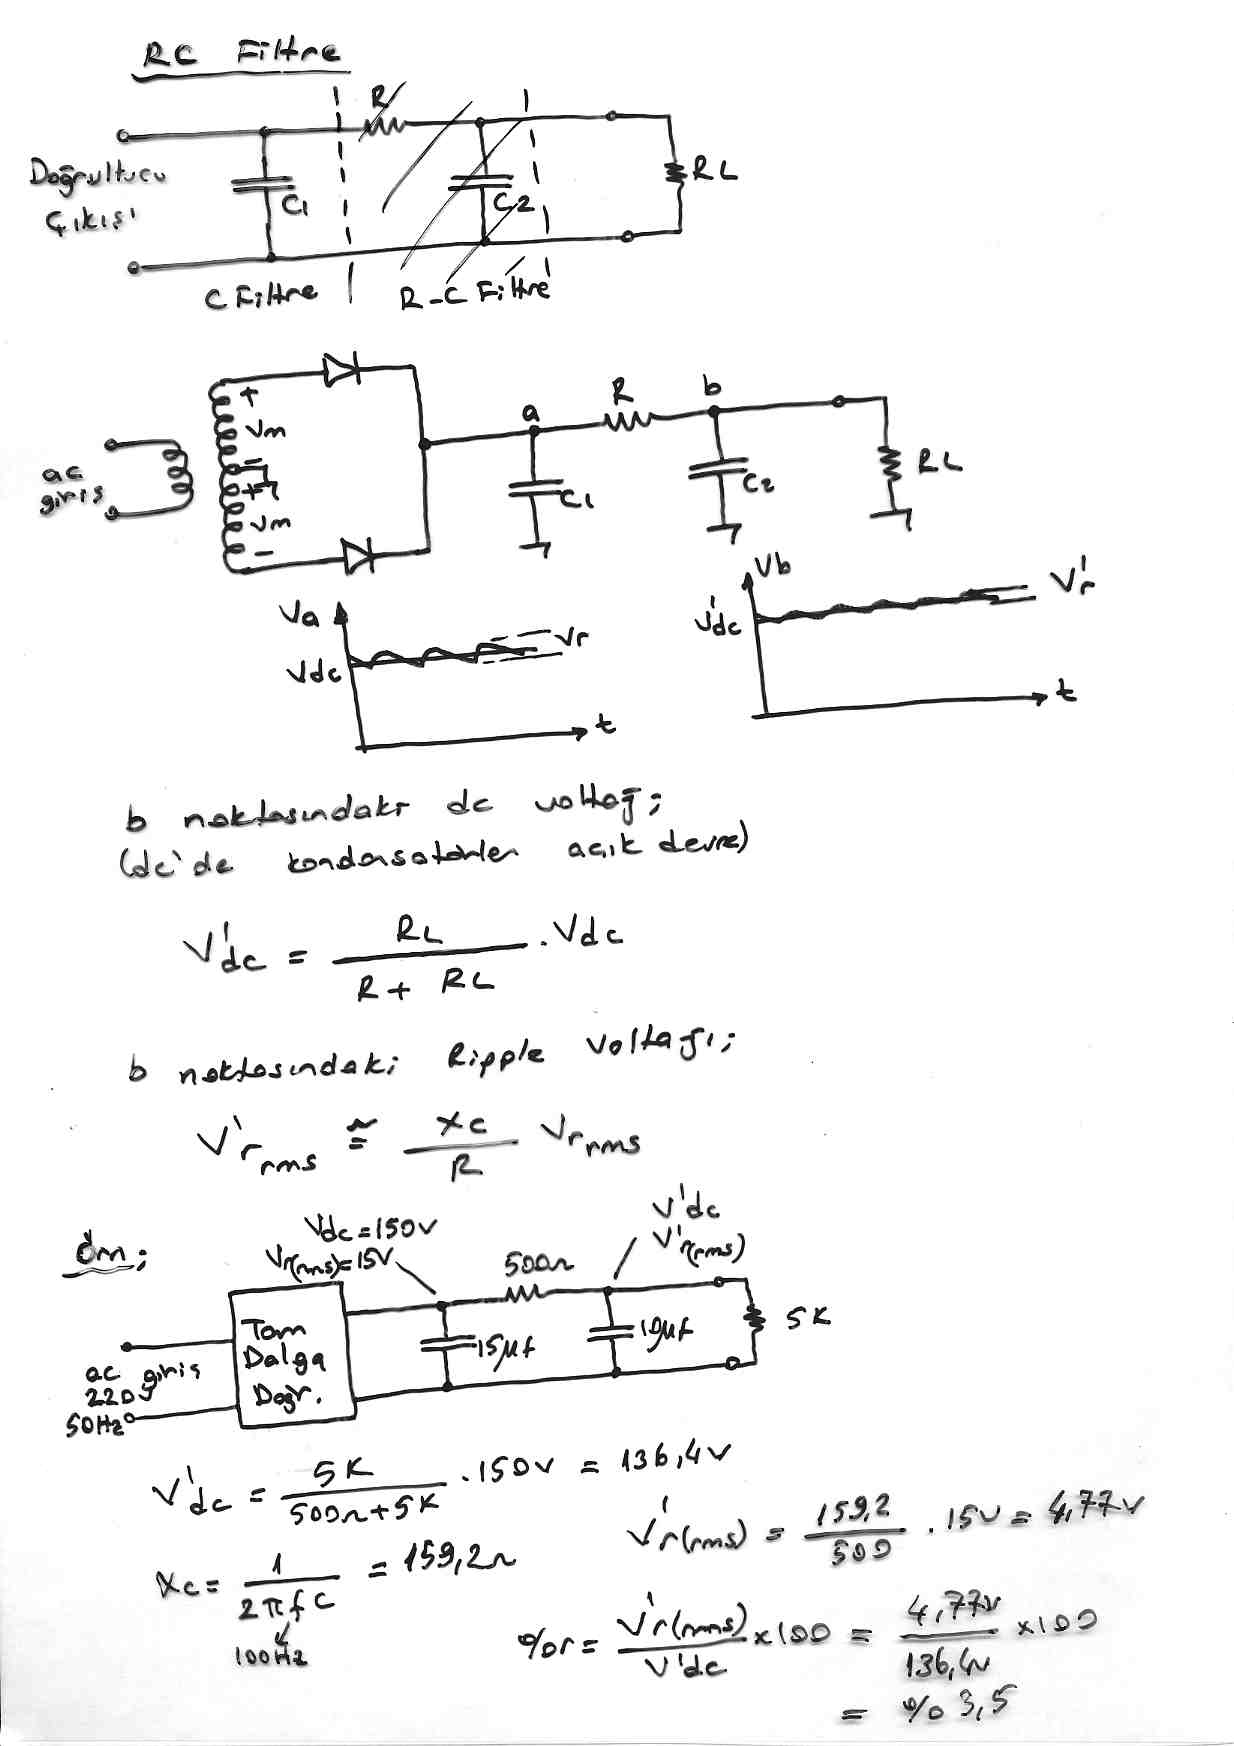 RC Filtre
R
Doğrultucu
Çıkışı
C1
C2
RL
C Filtre
R-C Filtre
ac
giriş
+
Vm
-
+
Vm
-
a
R
b
C1
C2
RL
Va
Vdc
Vr
t
Vb
V'dc
V'r
t
b noktasındaki dc voltaj;
(dc'de kondansatörler açık devre)
V'dc = RL / (R + RL) . Vdc
b noktasındaki Ripple voltajı;
V'r rms ≅ Xc / R Vr rms
Örn;
Vdc = 150V
Vr(rms) = 15V
500Ω
V'dc
V'r(rms)
Tam
Dalga
Doğr.
15µf
10µf
5K
ac giriş
220V
50Hz
V'dc = 5K / (500Ω + 5K) . 150V = 136,4V
Xc = 1 / (2πfC) = 159,2Ω
100Hz
V'r(rms) = 159,2 / 500 . 15V = 4,77V
%r = V'r(rms) / V'dc x100 = 4,77V / 136,4V x100
= %3,5